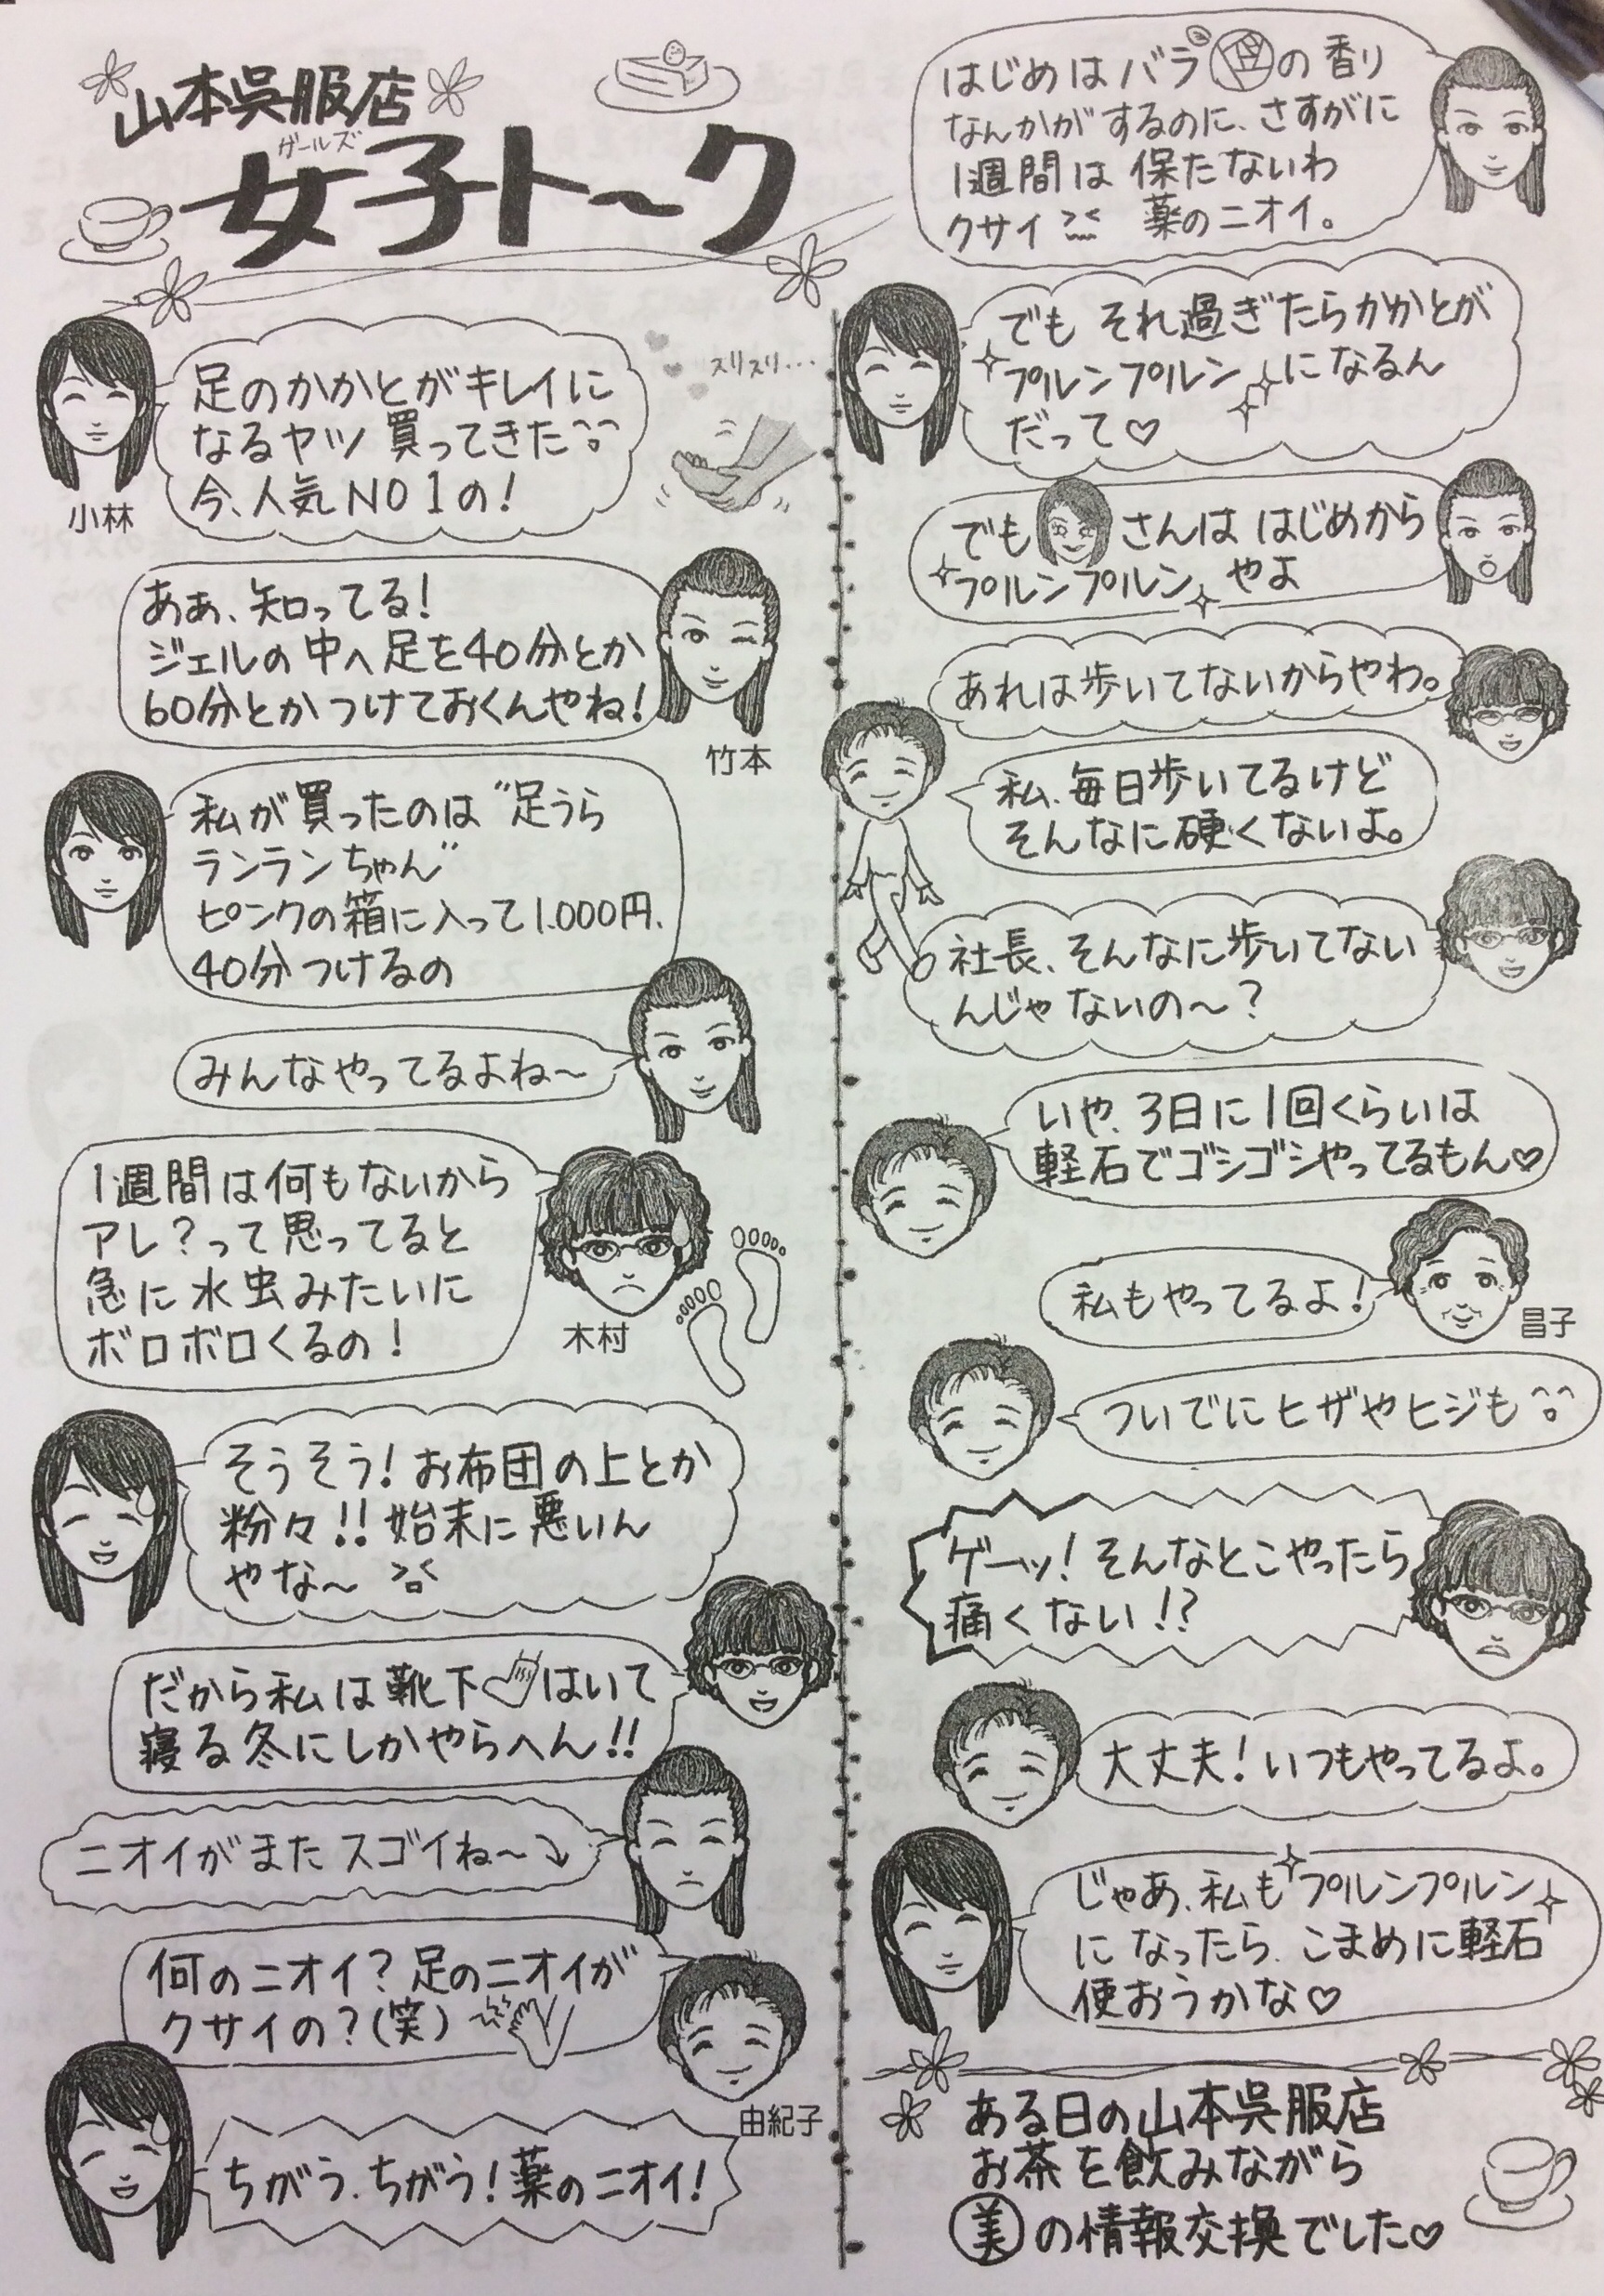 山本呉服店
ガールズ
女子ト〜ク
足のかかとがキレイに
なるヤツ 買ってきた^^
今、人気NO1の!
スリスリ…
小林
あぁ、知ってる!
ジェルの中へ足を40分とか
60分とかつけておくんやね!
竹本
私が買ったのは"足うら
ランランちゃん"
ピンクの箱に入って1.000円、
40分つけるの
みんなやってるよね〜
1週間は何もないから
アレ?って思ってると
急に水虫みたいに
ボロボロくるの!
木村
そうそう!お布団の上とか
粉々!!始末に悪いん
やな〜
だから私は靴下はいて
寝る冬にしかやらへん!!
ニオイがまたスゴイね〜
何のニオイ?足のニオイが
クサイの?(笑)
由紀子
ちがう、ちがう!薬のニオイ!
はじめはバラの香り
なんかがするのに、さすがに
1週間は保たないわ
クサイ 薬のニオイ。
でも それ過ぎたらかかとが
プルンプルンになるん
だって♡
でも さんは はじめから
プルンプルン やよ
あれは歩いてないからやわ。
私、毎日歩いてるけど
そんなに硬くないよ。
社長、そんなに歩いてない
んじゃないの〜?
いや、3日に1回くらいは
軽石でゴシゴシやってるもん♡
私もやってるよ!
昌子
ついでにヒザやヒジも^^
ゲーッ!そんなとこやったら
痛くない!?
大丈夫!いつもやってるよ。
じゃあ、私もプルンプルン
になったら、こまめに軽石
使おうかな♡
ある日の山本呉服店
お茶を飲みながら
美の情報交換でした♡